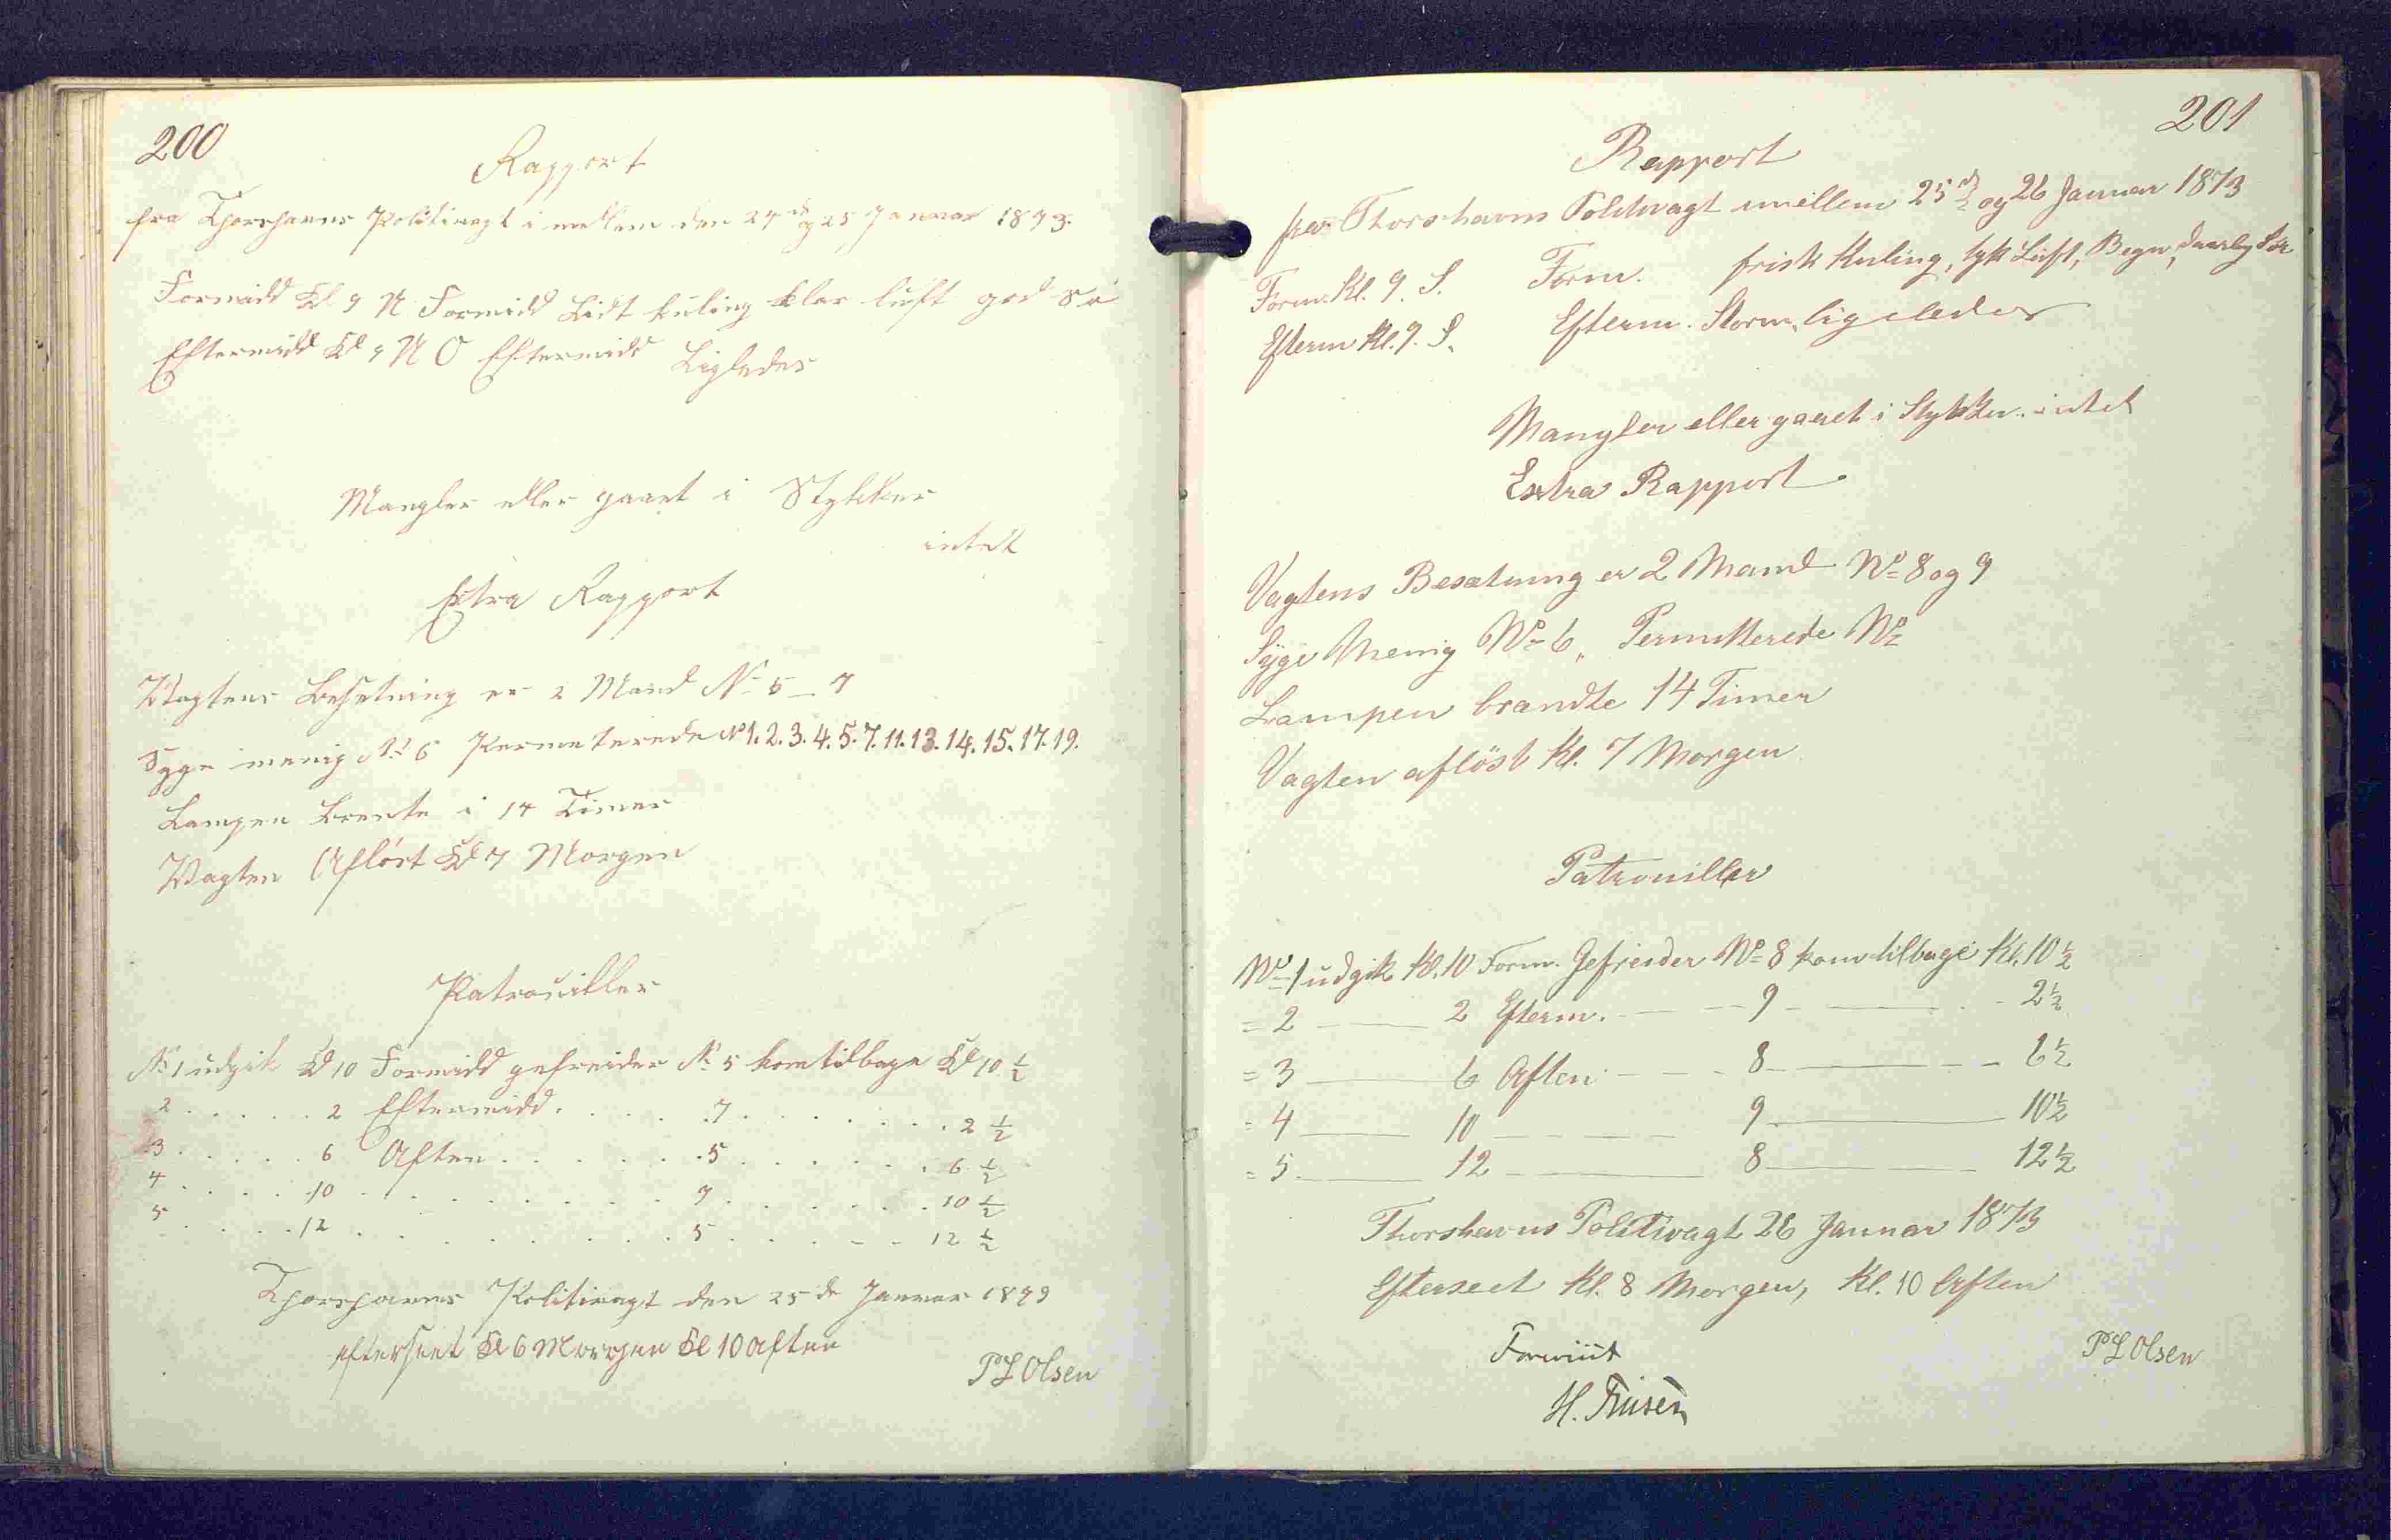 200
Rapport
fra Thorshavns Politivagt i mellem den 24de og 25 Januar 1873.
Formidd Kl 9 N Formidd Lidt kuling klar luft god Sö
Eftermidd Kl 9 N O Eftermidd Ligledes
Mangler eller gaaet i Stykker
intet
Extra Rapport
Wagtens Besetning er 2 Mand No 5 – 7
Syge menig No 6 Permeterede No 1. 2. 3. 4. 5. 7. 11. 13. 14. 15. 17. 19.
Lampen Brente i 14 Timer
Wagten Aflöst Kl 7 Morgen
Patrouiller
No 1 udgik Kl 10 Formidd gefreider No 5 kom tilbage Kl 10 ½
2 . . . . . 2 Eftermidd. . . . . 7 . . . . . . . 2 ½
3 . . . . . 6 Aften . . . . . . 5 . . . . . . 6 ½
4 . . . . 10 . . . . . . . . . 7 . . . . . . 10 ½
5 . . . . 12 . . . . . . . . . 5 . . . . . 12 ½
Thorshavns Politivagt den 25de Januar 1873
efterseet Kl 6 Morgen Kl 10 Aften
P L Olsen
201
Rapport
fra Thorshavns Politivagt imellem 25de og 26 Januar 1873
Form. Kl. 9. S. Form. frisk Kuling, tyk Luft, Regn, daarlig Sö
Efterm Kl. 9. S. Efterm. Storm, ligeledes
Mangler eller gaaet i Stykker. intet
Extra Rapport
Vagtens Besætning er 2 Mand No 8 og 9
Syge Menig No 6, Permitterede No
Lampen brandte 14 Timer
Vagten aflöst Kl. 7 Morgen
Patrouiller
No 1 udgik Kl. 10 Form. Gefreider No 8 kom tilbage Kl. 10 ½
= 2 —— 2 Efterm. — — 9 —— 2 ½
= 3 —— 6 Aften — — 8 —— 6 ½
= 4 —— 10 — — — 9 —— 10 ½
= 5 —— 12 —— 8 —— 12 ½
Thorshavns Politivagt 26 Januar 1873
Efterseet Kl. 8 Morgen, Kl. 10 Aften
Foreviist
P L Olsen